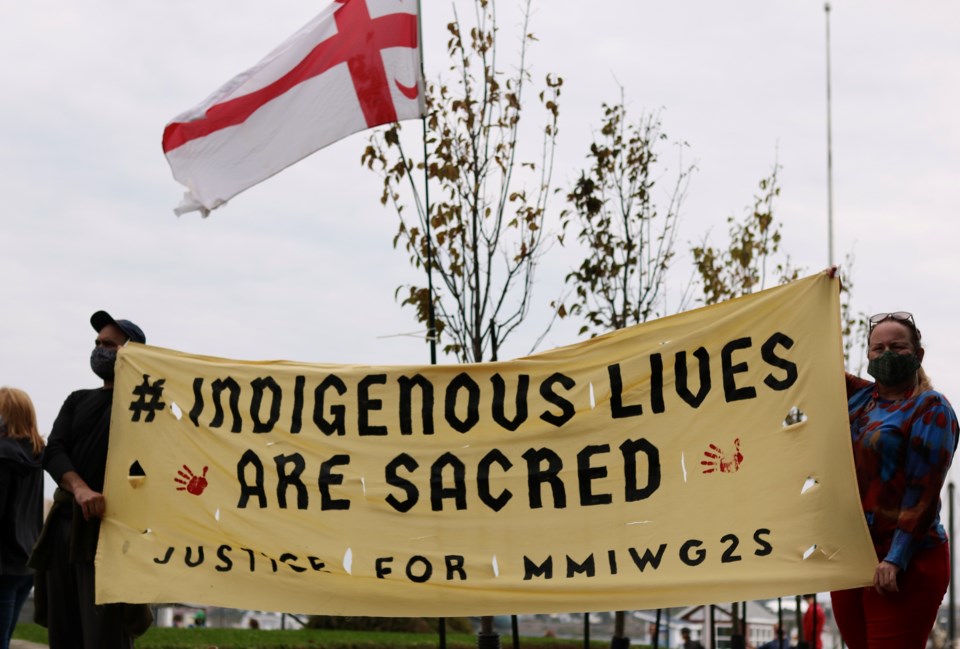 # INDIGENOUS LIVES
ARE SACRED
JUSTICE FOR MMIWG2S